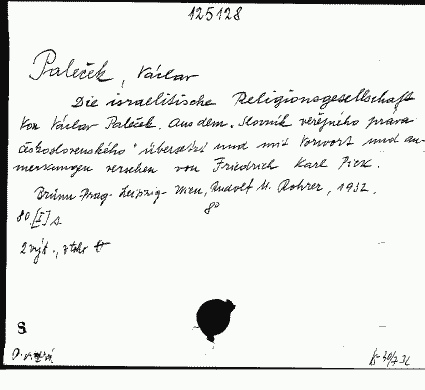 125128
Paleček, Václav
Die israelitische Religionsgesellschaft
Von Václav Paleček. Aus dem „Slovník veřejného práva
československého" übersetzt und mit Vorwort und an-
merkungen versehen von Friedrich Karl Pick.
Brünn-Prag-Leipzig-Wien, Rudolf M. Rohrer, 1932.
8°
80 [I] s
2 výt.,
8